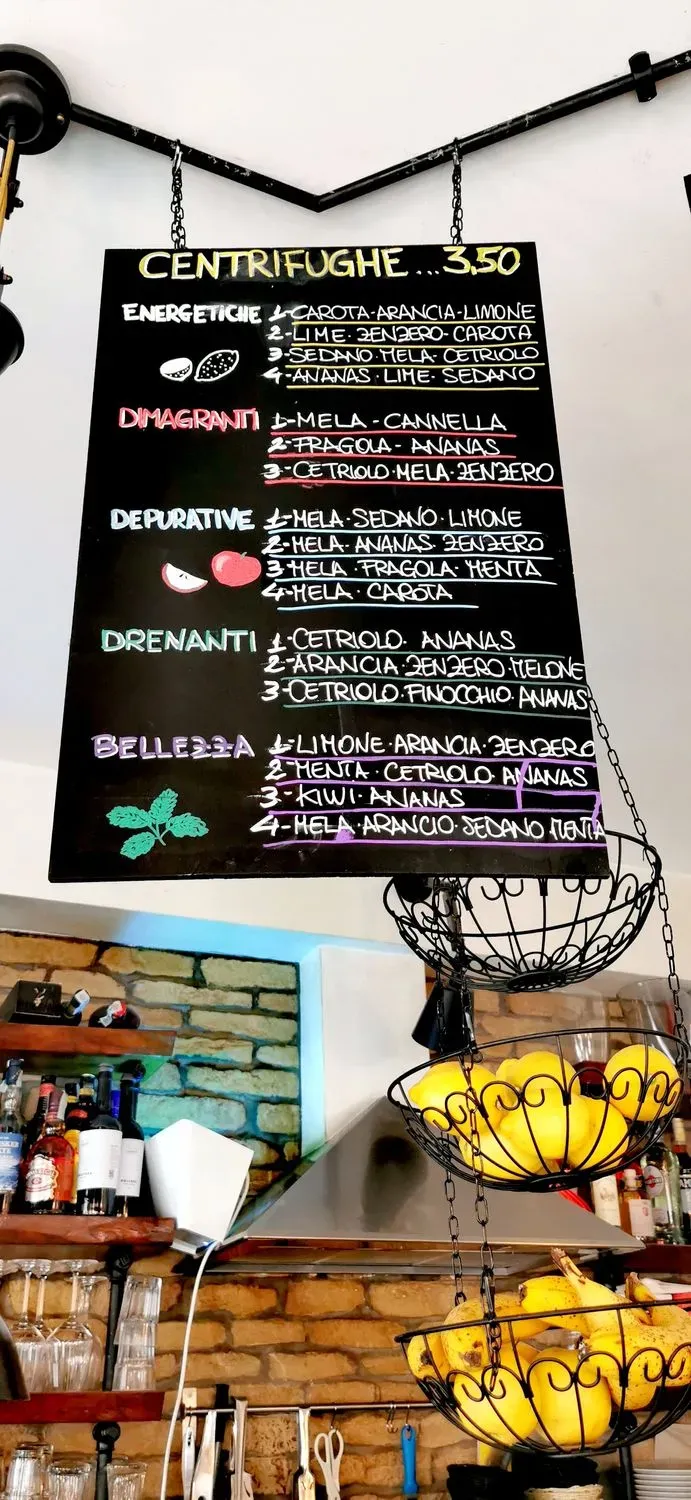 CENTRIFUGHE...3,50
ENERGETICHE 1-CAROTA-ARANCIA-LIMONE
2-LIME·ZENZERO-CAROTA
3-SEDANO·MELA·CETRIOLO
4-ANANAS·LIME·SEDANO
DIMAGRANTI 1-MELA-CANNELLA
2-FRAGOLA-ANANAS
3-CETRIOLO·MELA·ZENZERO
DEPURATIVE 1-MELA·SEDANO·LIMONE
2-MELA·ANANAS·ZENZERO
3-MELA·FRAGOLA·MENTA
4-MELA·CAROTA
DRENANTI 1-CETRIOLO·ANANAS
2-ARANCIA·ZENZERO·MELONE
3-CETRIOLO·FINOCCHIO·ANANAS
BELLEZZA 1-LIMONE·ARANCIA·ZENZERO
2-MENTA·CETRIOLO·ANANAS
3-KIWI·ANANAS
4-MELA·ARANCIO·SEDANO MENTA